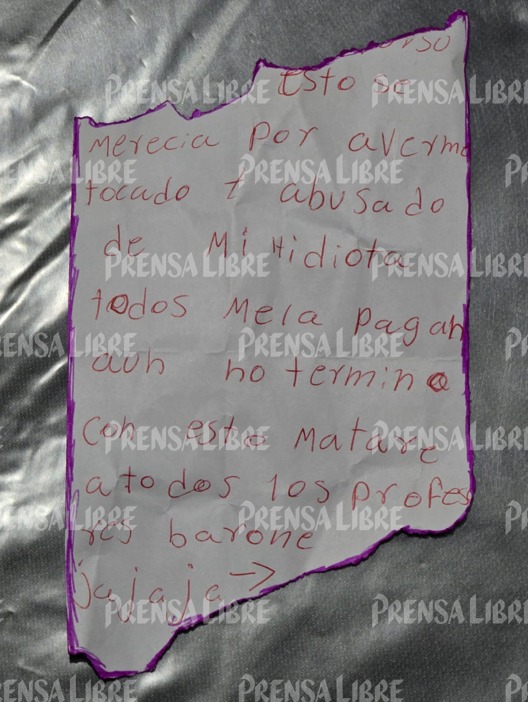 Esto se
merecia por averme
tocado y abusado
de Mi Hidiota
todos Mela pagan
aun no termino
con esto Matare
atodos los profes
res barone
jajaja →
PRENSA LIBRE